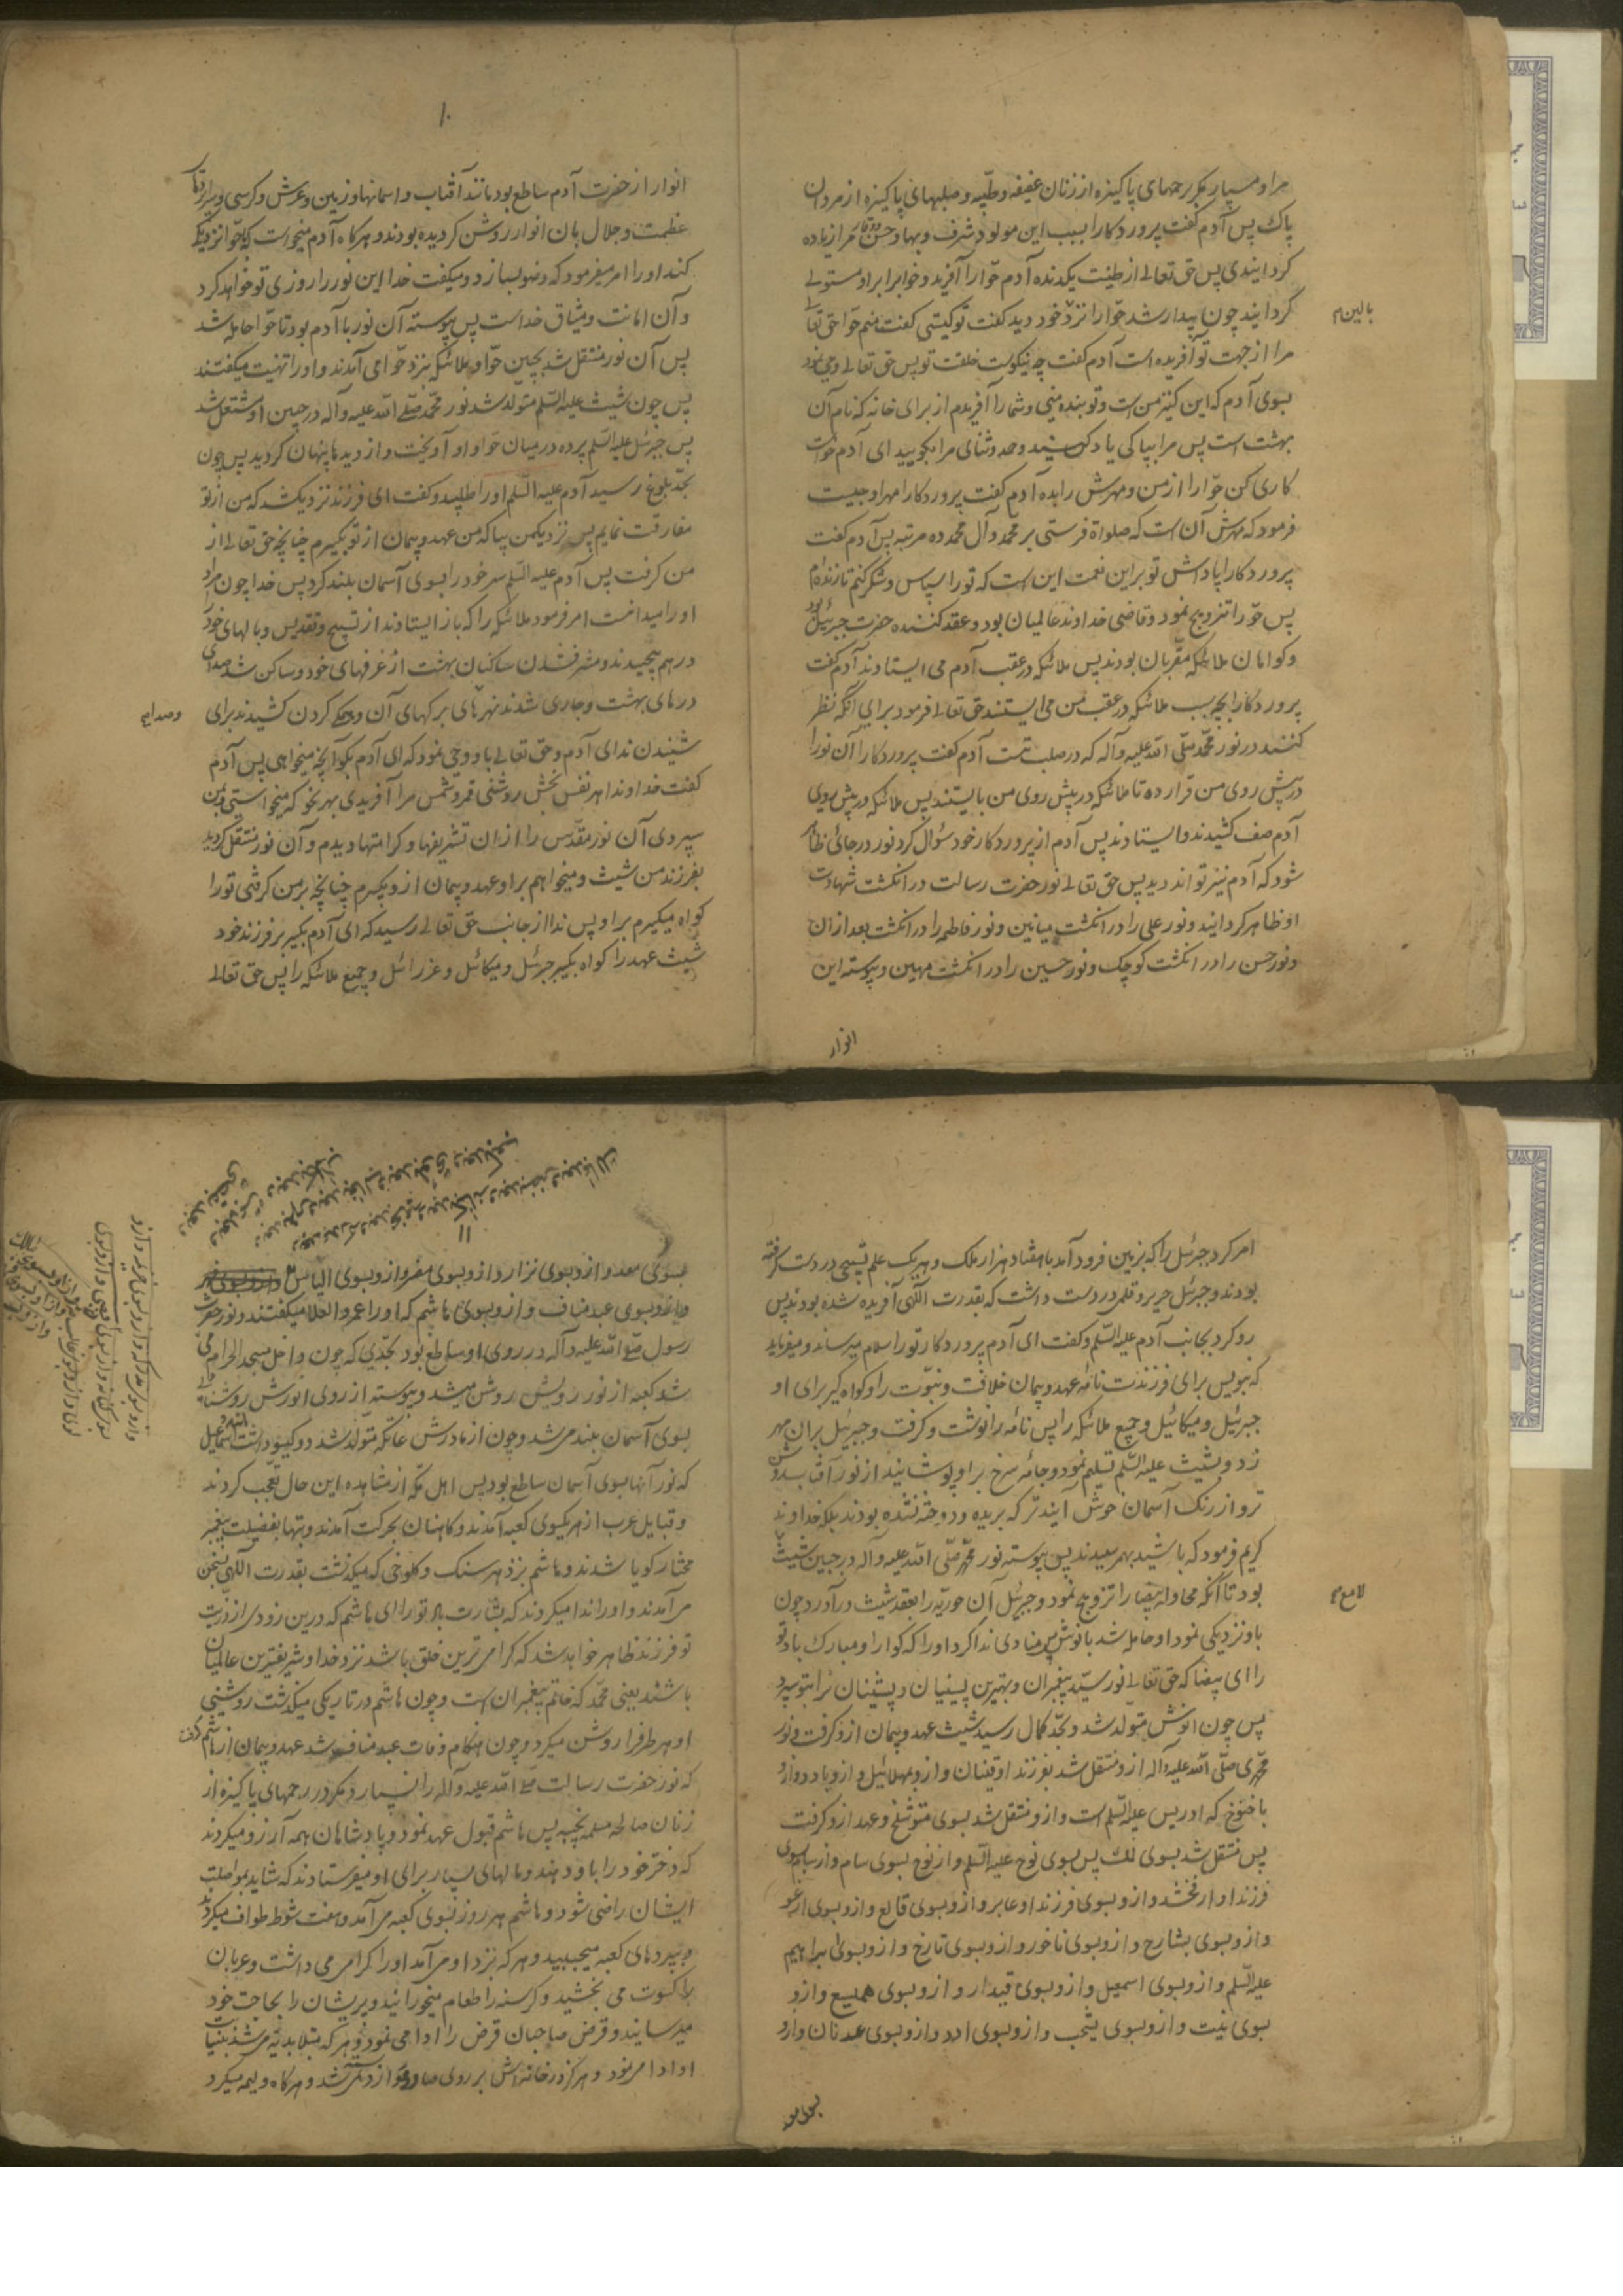 مراو مسپار مگر برحمهای پاکیزه از زنان عفیفه و طیّبه و صلبهای پاکیزه از مردان
پاک پس آدم گفت پروردکارا بسبب این مولود شرف و بها و حسن و وقار مرا زیاده
کردانیدی پس حق تعالی از طینت یکدنده آدم حوّا را آفرید و خوابرا بر او مستولی
کردانیند چون بیدار شد حوّا را نزد خود دید گفت تو کیستی گفت منم حوّا حق تعالی
بالین م
مرا از جهت تو آفریده است آدم گفت چه نیکوست خلقت تو پس حق تعالی وحی نمود
بسوی آدم که این کنیز من است و تو بنده منی و شما را آفریدم از برای خانه که نام آن
بهشت است پس مرا بپاکی یاد کنید و حمد و ثنای مرا بکویید ای آدم خواست
کاری کن حوّا را از من و مهرش را بده آدم گفت پروردکارا مهر او چیست
فرمود که مهرش آن است که صلواة فرستی بر محمد و آل محمد ده مرتبه پس آدم گفت
پروردکارا پاداش تو بر این نعمت این است که تو را سپاس و شکر کنم تا زنده‌ام
پس حوّا را تزویج نمود و قاضی خداوند عالمیان بود و عقد کننده حضرت جبرئیل بود
و کواهان ملائکه مقرّبان بودند پس ملائکه در عقب آدم می ایستادند آدم گفت
پروردکارا بچه سبب ملائکه در عقب من می ایستند حق تعالی فرمود برای آنکه نظر
کنند در نور محمّد صلّی الله علیه و آله که در صلب تست آدم گفت پروردکارا آن نور را
در پیش روی من قرار ده تا ملائکه در پیش روی من بایستند پس ملائکه در پیش روی
آدم صف کشیدند و ایستادند پس آدم از پروردکار خود سؤال کرد نور در جائی ظاهر
شود که آدم نیز تواند دید پس حق تعالی نور حضرت رسالت در انکشت شهادت
او ظاهر کردانید و نور علی را در انکشت میانین و نور فاطمه را در انکشت بعد از آن
و نور حسن را در انکشت کوچک و نور حسین را در انکشت مهین و پیوسته این
انوار
۱۰
انوار از حضرت آدم ساطع بود مانند آفتاب و اسمانها و زمین و عرش و کرسی و سراپرده‌های
عظمت و جلال بآن انوار روشن کردیده بودند و هرکاه آدم میخواست که با حوّا نزدیکی
کند او را امر میفرمود که وضو بسازد و میکفت خدا این نور را روزی تو خواهد کرد
و آن امانت و میثاق خداست پس پیوسته آن نور با آدم بود تا حوّا حامله شد
پس آن نور منتقل شد بجبین حوّا و ملائکه بنزد حوّا می آمدند و او را تهنیت میکفتند
پس چون شیث علیه السّلم متولد شد نور محمّد صلّی الله علیه و آله در جبین او مشتعل شد
پس جبرئل علیه السّلم پرده در میان حوّا و او آویخت و از دیدها پنهان کردید پس چون
بحدّ بلوغ رسید آدم علیه السّلم او را طلبید و گفت ای فرزند نزدیکشد که من از تو
مفارقت نمایم پس نزدیکمن بیا که من عهد و پیمان از تو بکیرم چنانچه حق تعالی از
من کرفت پس آدم علیه السّلم سر خود را بسوی آسمان بلند کرد پس خدا چون مراد
او را میدانست امر فرمود ملائکه را که باز ایستادند از تسبیح و تقدیس و بالهای خود را
درهم پیچیدند و مشرف شدن ساکنان بهشت از غرفهای خود و ساکن شد صدای
درهای بهشت و جاری شدن نهرهای برکهای آن و همکی کردن کشیدند برای
و صدایم
شنیدن ندای آدم و حق تعالی باو وحی نمود که ای آدم بکو آنچه میخواهی پس آدم
گفت خداوندا هر نفس بخش روشنی قمر و شمس مرا آفریدی بهر نحو که میخواستی و بمن
سپردی آن نور مقدّس را از ان تشریفها و کرامتها دیدم و آن نور منتقل کردید
بفرزند من شیث و میخواهم بر او عهد و پیمان از او بکیرم چنانچه بر من کرفتی تو را
کواه میکیرم بر او پس ندا از جانب حق تعالی رسید که ای آدم بکیر بر فرزند خود
شیث عهد را کواه بکیر جبرئل و میکائل و عزرائل و جمیع ملائکه را پس حق تعالی
امر کرد جبرئل را که بزمین فرود آمد با هفتاد هزار ملک و هر یک علم تسبیحی در دست کرفته
بودند و جبرئل حریر و قلمی در دست داشت که بقدرت الکهی آفریده شده بودند پس
رو کرد بجانب آدم علیه السّلم و گفت ای آدم پروردکار تو را سلام میرساند و میفرماید
که بنویس برای فرزندت نامه عهد و پیمان خلافت و نبوّت را و کواه گیر برای او
جبرئیل و میکائیل و جمیع ملائکه را پس نامه را نوشت و کرفت و جبرئیل بر ان مهر
زد و بشیث علیه السّلم تسلیم نمود و جامه سرخ بر او پوشانیدند از نور آفتاب روشن
تر و از رنک آسمان خوش آینده‌تر که بریده و دوخته نشده بودند بلکه خداوند
کریم فرمود که باشید بهم رسیدند پس پیوسته نور محمّد صلّی الله علیه و آله در جبین شیث
لامع م
بود تا آنکه محاوله بیضا را تزویج نمود و جبرئیل آن حوریّه را بعقد شیث درآورد چون
باو نزدیکی نمود او حامله شد بانوش پس منادی ندا کرد او را که کوارا و مبارک باد تو
را ای بیضا که حق تعالی نور سیّد پیغمبران و بهترین پسینیان و پیشینیان را بتو سپرد
پس چون انوش متولد شد و بحدّ کمال رسید شیث عهد و پیمان ازو کرفت و نور
محمّدی صلّی الله علیه و آله ازو منتقل شد بفرزند او قینان و ازو بمهلائیل و ازو بادد و ازو
باخنوخ که ادریس علیه السّلم است و ازو منتقل شد بسوی متوشلخ و عهد ازو کرفت
پس منتقل شد بسوی لمک پس بسوی نوح علیه السّلم و از نوح بسوی سام و از سام بسوی
فرزند او ارفخشد و ازو بسوی فرزند او عابر و ازو بسوی قالع و ازو بسوی ارغو
و ازو بسوی بشارح و ازو بسوی ناخور و ازو بسوی تارخ و ازو بسوی ابراهیم
علیه السّلم و ازو بسوی اسمعیل و ازو بسوی قیدار و ازو بسوی همیسع و ازو
بسوی نیت و ازو بسوی یشجب و ازو بسوی ادد و ازو بسوی عدنان و ازو
بسوی معد
۱۱
بسوی معد و ازو بسوی نزار و ازو بسوی مضر و ازو بسوی الیاس
و ازو بسوی عبد مناف و ازو بسوی هاشم که او را عمرو العلا میکفتند و نور حضرت
رسول صلّی الله علیه و آله در روی او ساطع بود بحدّی که چون داخل مسجد الحرام می
شد کعبه از نور رویش روشن میشد و پیوسته از روی انورش روشنائی
بسوی آسمان بلند میشد و چون از مادرش عاتکه متولد شد دو کیسو داشت مانند اسمعیل
که نور آنها بسوی آسمان ساطع بود پس اهل مکّه از مشاهده این حال تعجّب کردند
و قبایل عرب از هر سوی بسوی کعبه آمدند و کاهنان بحرکت آمدند و بتها بفضیلت پیغمبر
مختار کویا شدند و هاشم بر هر سنک و کلوخی که میکذشت بقدرت الکهی بسخن
می آمدند و او را ندا میکردند که بشارت باد تو را ای هاشم که درین زودی از ذریّت
تو فرزند ظاهر خواهد شد که کرامی‌ترین خلق باشد نزد خدا و شریفترین عالمیان
باشند یعنی محمّد که خاتم پیغمبران است و چون هاشم در تاریکی میکذشت روشنی
او هر طرفرا روشن میکرد و چون هنکام وفات عبد مناف شد عهد و پیمان از هاشم کرفت
که نور حضرت رسالت صلّی الله علیه و آله را نسپارد مکر در رحمهای پاکیزه از
زنان صالحه مسلمه نجیبه پس هاشم قبول عهد نمود و پادشاهان همه آرزو میکردند
که دختر خود را باو دهند و مالهای بسیار برای او میفرستادند که شاید بمواصلت
ایشان راضی شود و هاشم هر روز بسوی کعبه می آمد و هفت شوط طواف میکرد
و بپردهای کعبه میچسپید و هر که نزد او می آمد او را اکرام می داشت و عریان
را کسوت می بخشید و کرسنه را طعام میخورانید و پریشان را بحاجت خود
میرسانید و قرض صاحبان قرض را ادا می نمود و هر که مبتلا بدیه می شد بنیابت
او ادا می نمود و هرکز در خانه‌اش بر روی صادر و وارد بسته نشد و هرکاه ولیمه میکرد